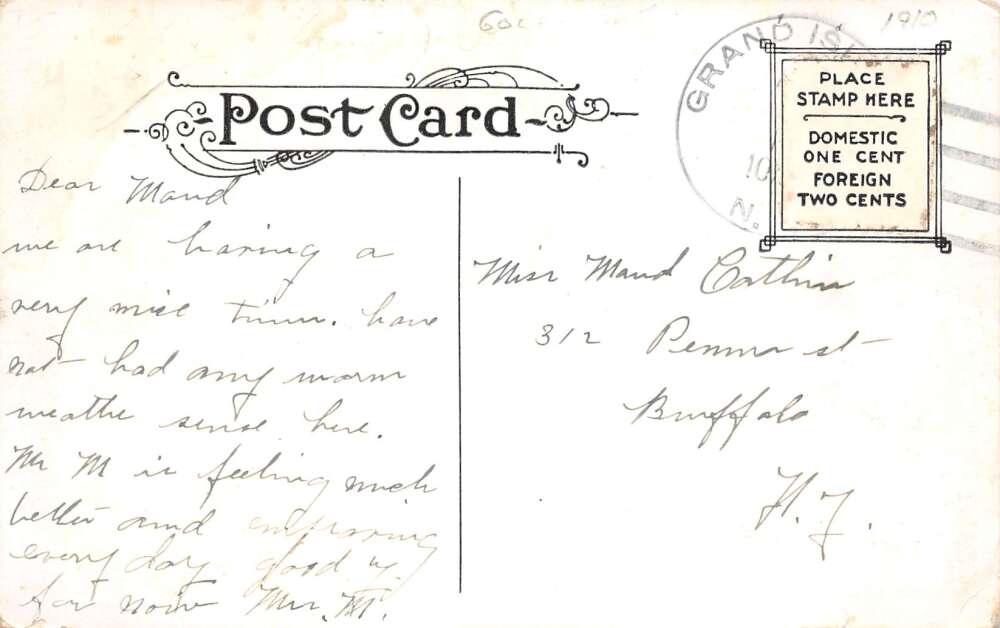 60c
1910
GRAND IS
10
N.
PLACE
STAMP HERE
DOMESTIC
ONE CENT
FOREIGN
TWO CENTS
Post Card
Dear Maud
we are having a
very nice time. have
not had any warm
weathe sense here.
Mr M is feeling much
better and emproving
every day. good by.
for now Mrs. M.
Miss Maud Catlin
312 Penna st
Buffalo
N.Y.